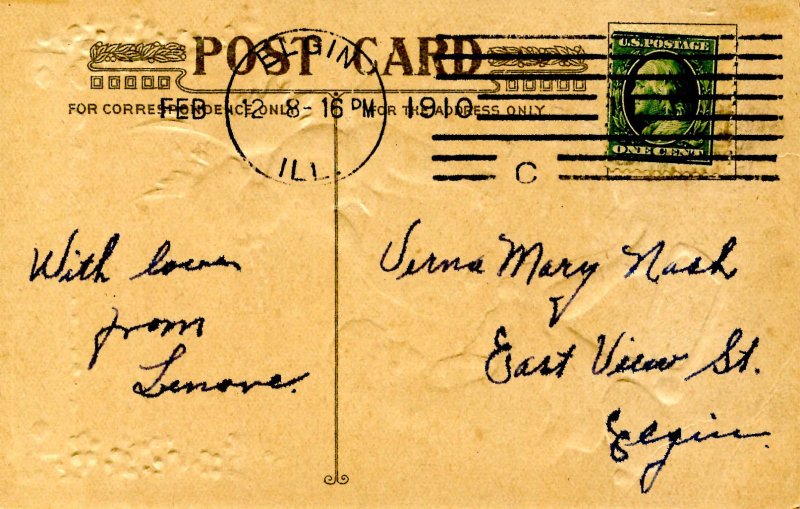 POST CARD
FOR CORRESPONDENCE ONLY
FOR THE ADDRESS ONLY
ELGIN,
FEB 12 8-16 PM 1910
ILL.
C
U.S. POSTAGE
ONE CENT
With love
from
Lenore.
Verna Mary Nash
East View St.
Elgin